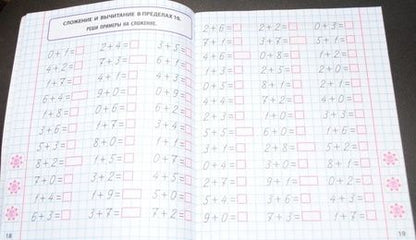 СЛОЖЕНИЕ И ВЫЧИТАНИЕ В ПРЕДЕЛАХ 10.
РЕШИ ПРИМЕРЫ НА СЛОЖЕНИЕ.
0+1= 2+4= 3+5=
4+2= 7+3= 6+1=
1+7= 4+1= 4+3=
6+4= 9+0= 0+9=
1+8= 0+6= 6+2=
3+6= 1+7= 3+4=
5+3= 8+0= 1+1=
8+2= 1+5= 0+7=
7+0= 3+2= 0+4=
1+4= 1+9= 5+0=
6+3= 3+7= 7+2=
18
2+6= 2+2= 0+3=
7+1= 3+7= 5+1=
4+6= 0+8= 1+0=
1+3= 2+5= 2+0=
0+5= 8+1= 1+2=
4+4= 7+2= 4+0=
2+3= 0+2= 3+1=
5+5= 6+0= 1+6=
4+5= 8+2= 5+2=
3+3= 3+0= 1+1=
2+7= 9+1= 0+2=
5+4= 3+6= 4+3=
9+0= 7+3= 1+7=
19